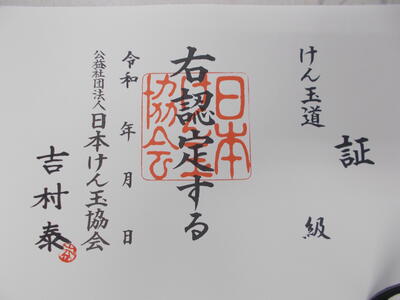 証
けん玉道 級
右認定する
令和 年 月 日
公益社団法人日本けん玉協会
吉村泰
日本
けん玉
協会